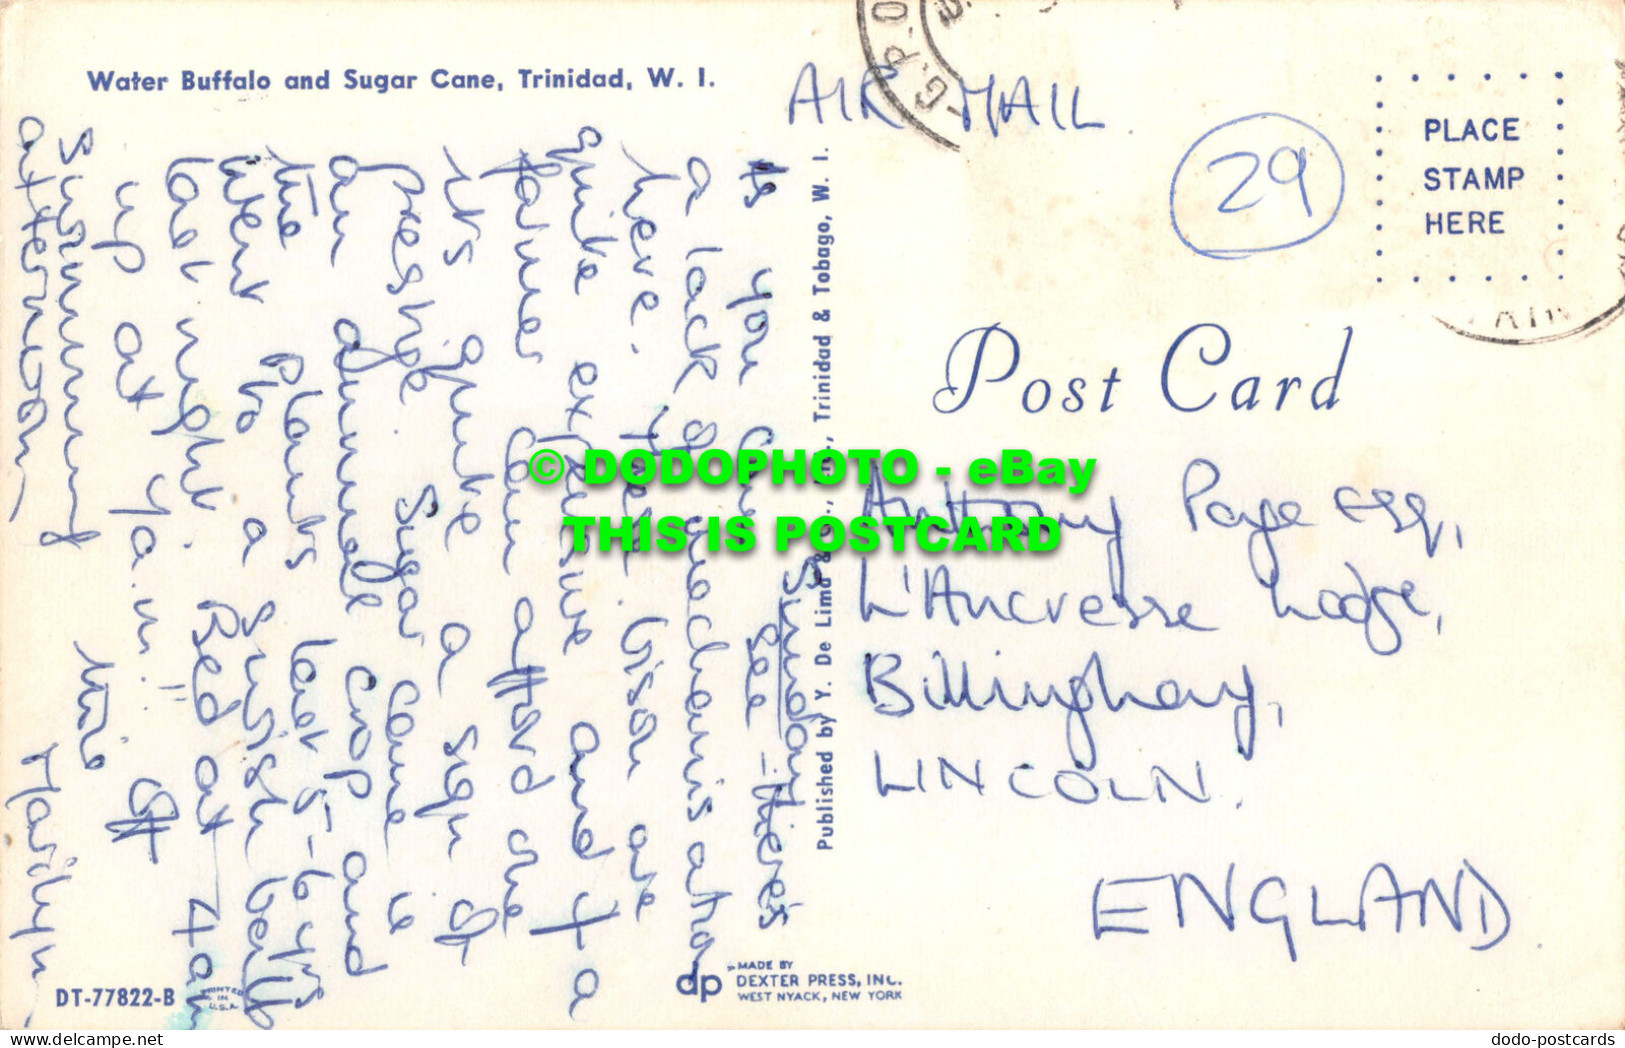 Water Buffalo and Sugar Cane, Trinidad, W. I.
AIR MAIL
G.P.O
29
PLACE
STAMP
HERE
Post Card
Sunday
As you can see - there's
a lack of mechanisation
here. These bison are
quite expensive and if a
farmer can afford one
it's quite a sign of
prestige. Sugar cane is
an annual crop and
the plants last 5-6 yrs
Went to a Swish
last night. Bed at 4am
up at 7a.m!! Off
swimming this
afternoon,
Marilyn
Published by Y. De Lima & Trinidad & Tobago, W. I.
Anthony Page Esq,
L'Ancresse Lodge,
Billinghay,
LINCOLN.
ENGLAND
© DODOPHOTO - eBay
THIS IS POSTCARD
DT-77822-B
PRINTED
IN
U.S.A.
dp
MADE BY
DEXTER PRESS, INC.
WEST NYACK, NEW YORK
delcampe.net
dodo-postcards